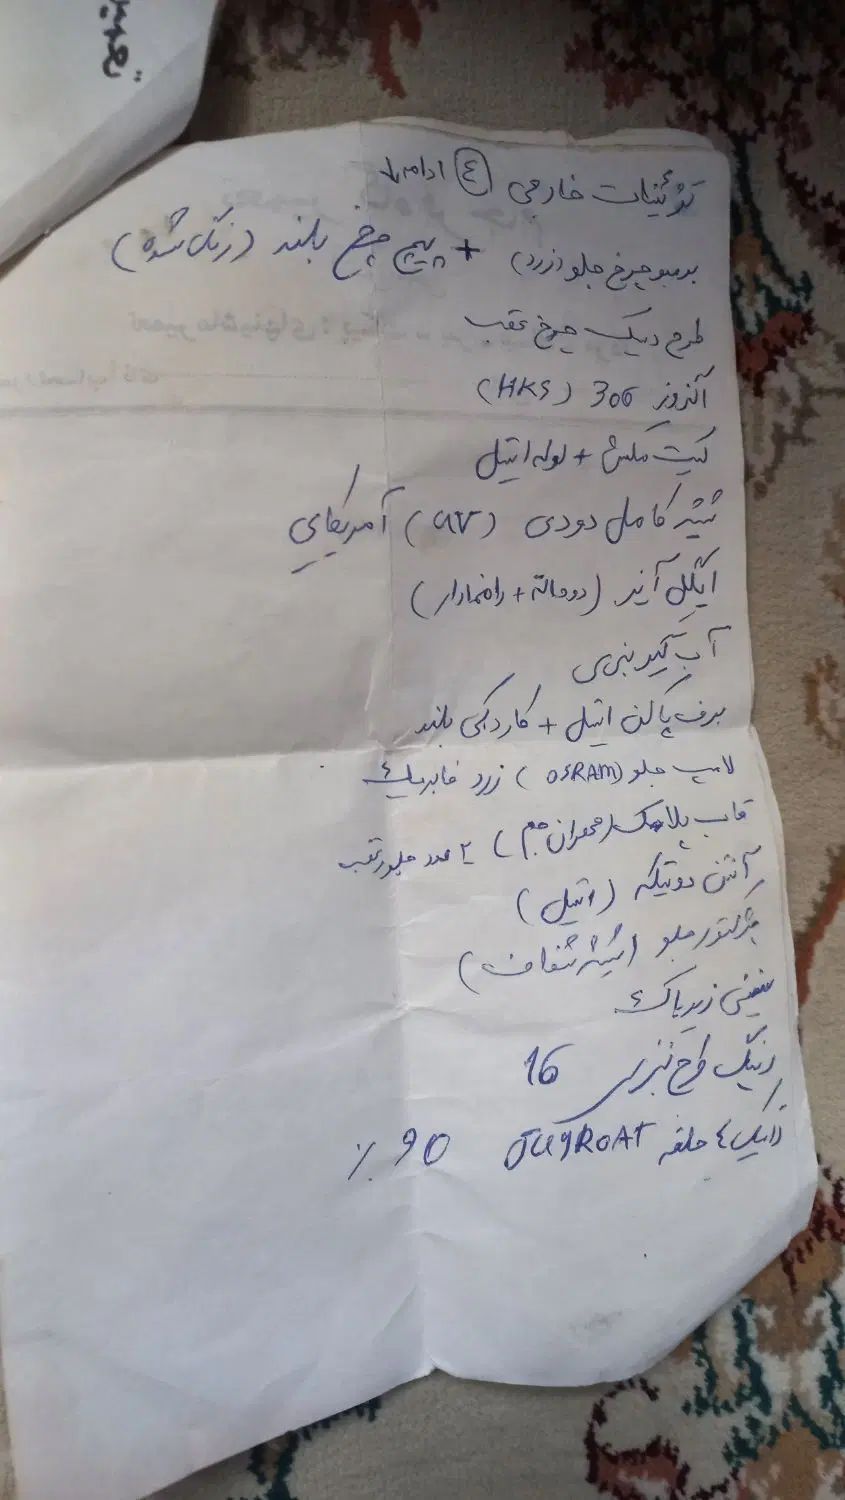 تزئینات خارجی ④ ادامه
برمبو چرخ جلو (زرد) + پیچ چرخ بلند (رنگ شده)
طرح دیسک چرخ عقب
اگزوز 306 (HKS)
کیت مکش + لوله استیل
شیشه کامل دودی (UV) آمریکایی
انگل آیز (دو حالته + راهنمادار)
آب گیر بنزی
برف پاکن استیل + کاردکی بلند
لامپ جلو (OSRAM) زرد فابریک
قاب پلاک (عمران جم) ۲ عدد جلو عقب
آنتن دو تیکه (استیل)
پرژکتور جلو (شیشه شفاف)
سینی زیر باک
رینگ طرح نبزی 16
لاستیک ٤ حلقه JUYROAT 90 ٪
تعمیر